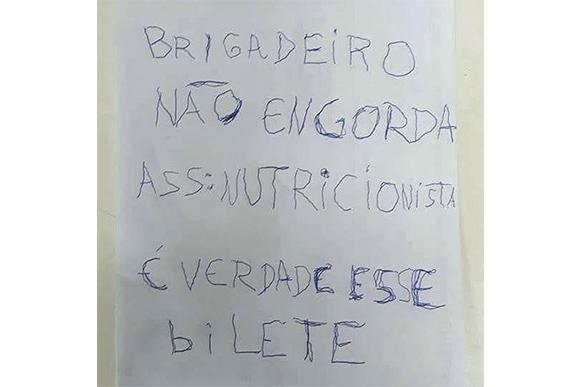 BRIGADEIRO
NÃO ENGORDA
ASS: NUTRICIONISTA
É VERDADE ESSE
biLETE